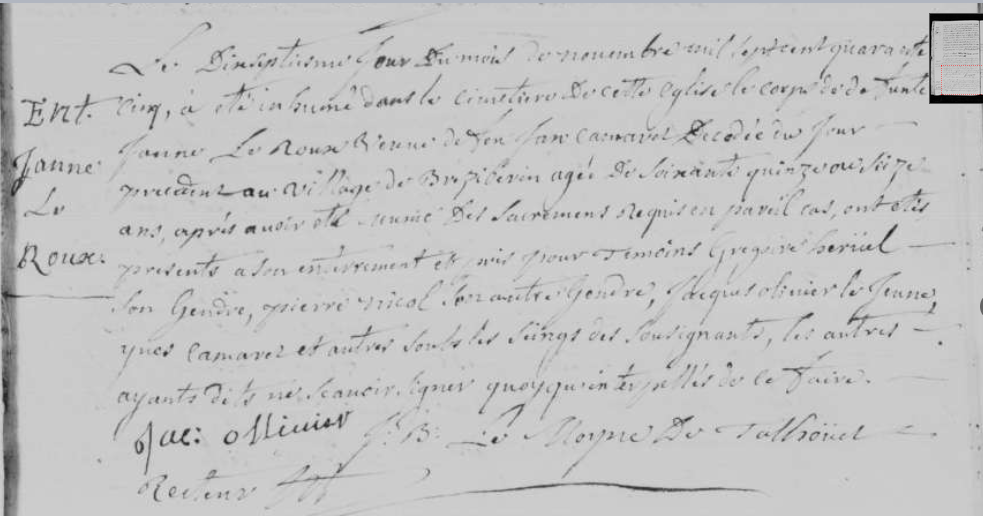 Le Dixseptiesme Jour Du mois de novembre mil sept cent quarante
Ent. cinq, à eté inhumé dans le cimetiere De cette Eglise le corps de defunte
Janne Janne Le Roux Veuve de feu Jan Camaret Decedée du Jour
precedent au village de agée De soixante quinze ou seize
Le ans, aprés avoir eté munie Des Sacremens Requis en pareil cas, ont etés
Roux. presents a son enterrement et pris pour Temoins Gregoire heriül
son Gendre, pierre nicol son autre Gendre, Jacques olivier le Jeune,
yves Camaret et autres soubs les seings des sousignants, les autres
ayants dits ne scauoir signer quoyqu'interpellés de ce faire.
Jac: ollivier J: B: Le De Talhoüet
Recteur